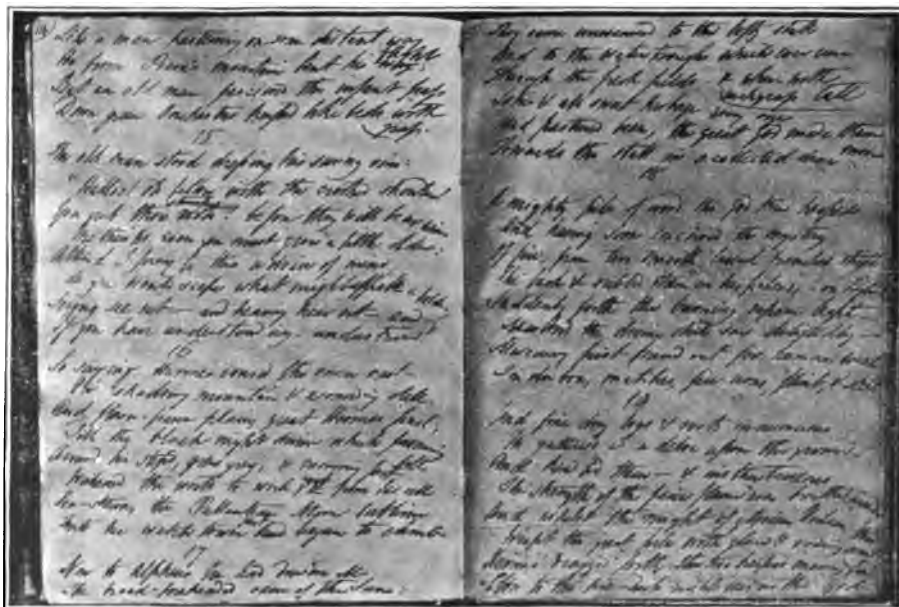 Like a man hastening on some distant way
He from Pieria's mountain bent his flight
But an old man perceived the infant pass
Down green Onchestus heaped like beds with
grass.
15
The old man stood dressing his sunny vine:
"Halloo! old fellow with the crooked shoulder
You grub those before they will bear wine
Methinks even you must grow a little older:
Attend I pray to this advice of mine
As you would scape what might appal a bolder
Seeing see not — and hearing hear not — and
If you have understanding — understand
16
So saying Hermes roused the oxen vast
O'er shadowy mountain & resounding dell
And flower-paven plains great Hermes past;
Till the black night divine which favouring fell
Around his steps, grew grey, & morning fast
Wakened the world to work & from her cell
Sea-strewn, the Pallantean Moon sublime
Into her watch tower just began to climb
17
Now to Alpheus he had driven all
The broad-foreheaded oxen of the Sun:
They came unwearied to the lofty stall
And to the water troughs which ever run
Through the fresh fields — & when with
rushgrass tall
Lotus & all sweet herbage every one
Had pastured been, the great God made them
move
Towards the stall in a collected drove
18
A mighty pile of wood the God then heaped
And having soon conceived the mystery
Of fire, from two smooth laurel branches stript
The bark & rubbed them in his palms, — on high
Suddenly forth the burning vapour leapt
And the divine child saw delightedly —
Mercury first found out for human weal
Tinder box, matches, fire irons, flint & steel
19
And fine dry logs & roots innumerous
He gathered in a delve upon the ground —
And kindled them — & instantaneous
The strength of the fierce flame was breathed around
And whilst the might of glorious Vulcan thus
Wrapt the great pile with glare & roaring sound
Hermes dragged forth two heifers
Close to the fire — such might was in the God